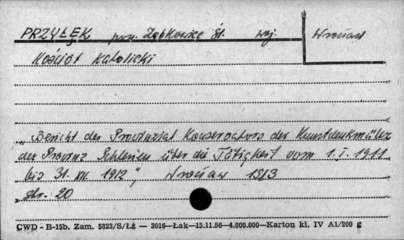 PRZYŁĘK pow. Ząbkowice Śl. woj. Wrocław
Kościół Katolicki
„Bericht des Provinzial Konservators der Kunstdenkmäler
der Provinz Schlesien über die Tätigkeit vom 1. I. 1911
bis 31. XII. 1912", Wrocław 1913
str. 20
CWD - B-15b. Zam. 5823/S/ŁŻ — 3016—Łak—15.11.56—4.000.000—Karton kl. IV A1/200 g